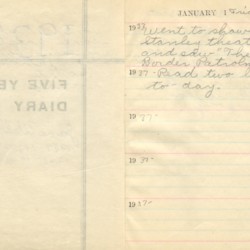 FIVE YE
DIARY
JANUARY 1
19 Went to show
Stanley theat
and saw "The
Border Patrol
19 Read two
to-day.
19
19
19